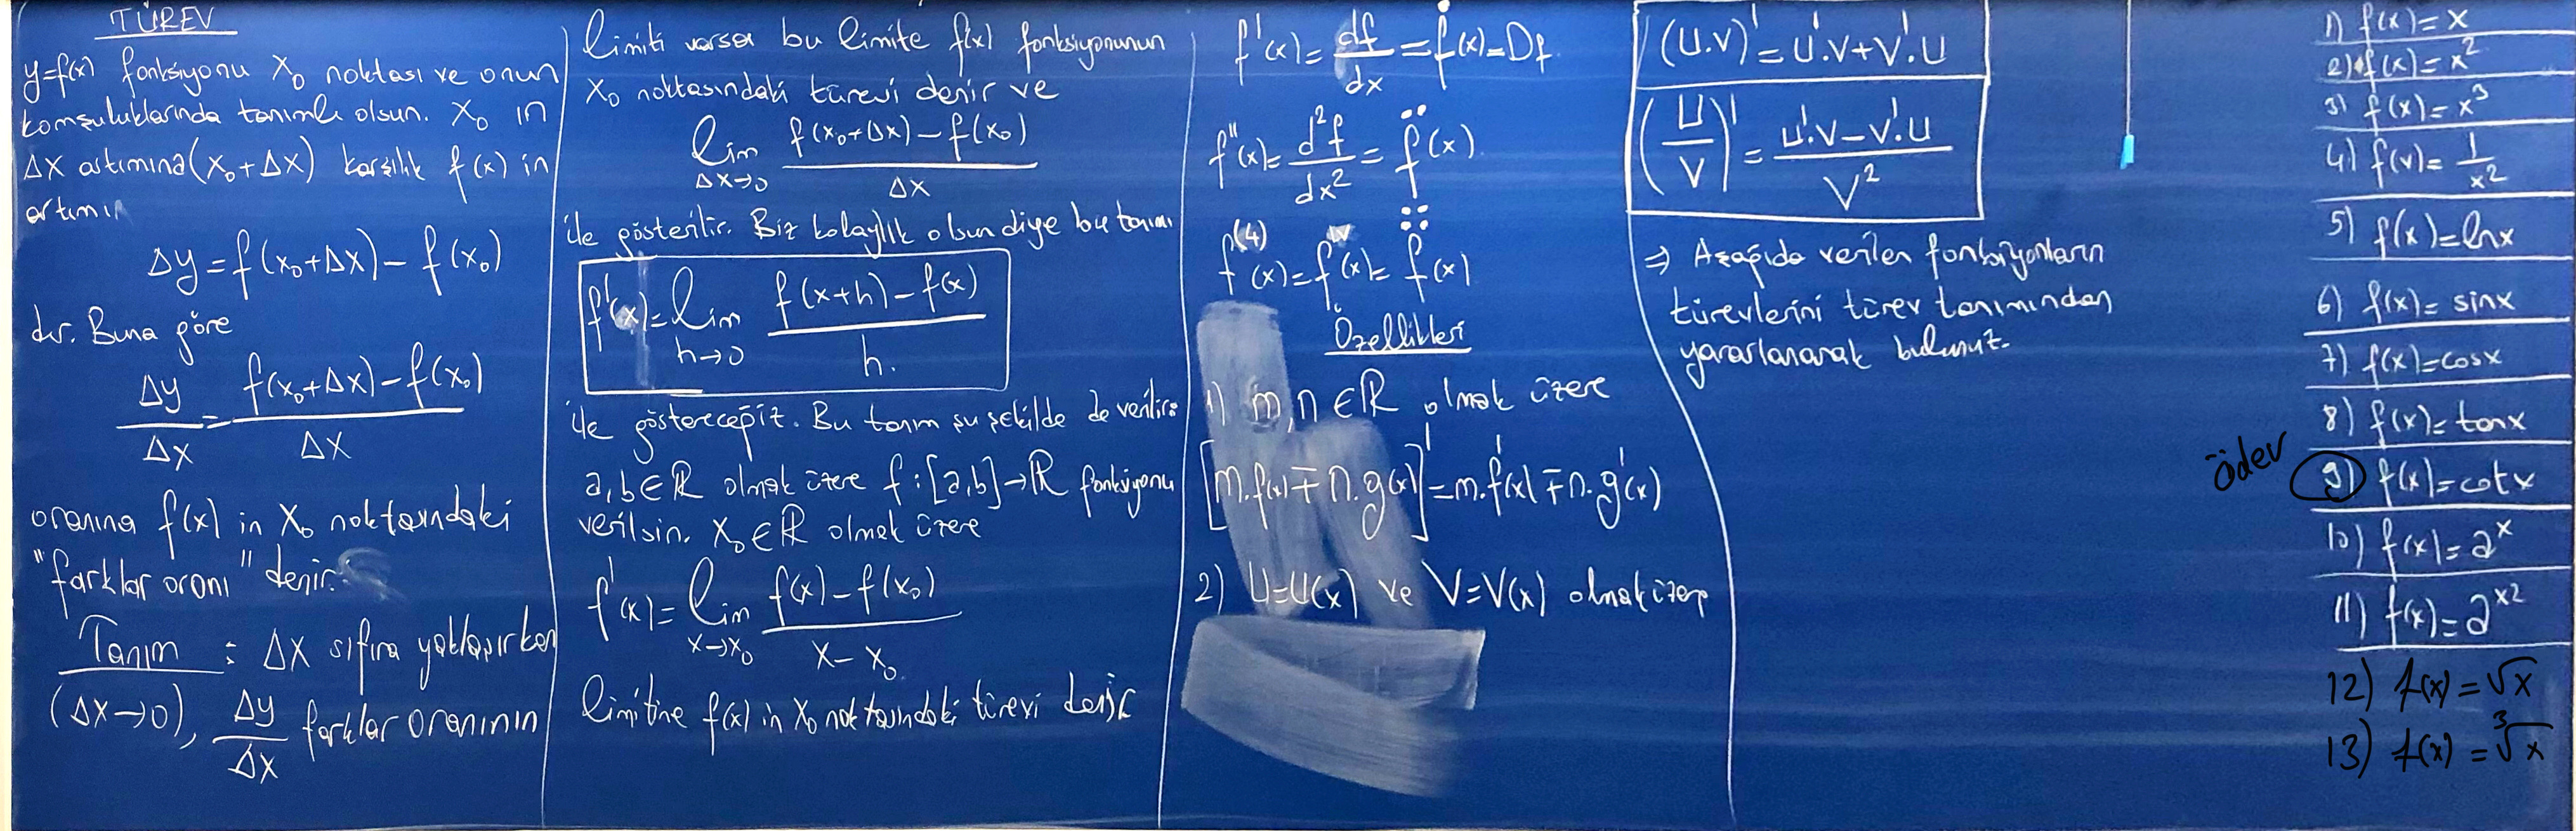 TÜREV
y=f(x) fonksiyonu x₀ noktası ve onun
komşuluklarında tanımlı olsun. x₀ ın
Δx artımına (x₀+Δx) karşılık f(x) in
artımın
Δy = f(x₀+Δx) - f(x₀)
dır. Buna göre
Δy/Δx = (f(x₀+Δx) - f(x₀))/Δx
oranına f(x) in x₀ noktasındaki
"farklar oranı" denir.
Tanım : Δx sıfıra yaklaşırken
(Δx→0), Δy/Δx farklar oranının
limiti varsa bu limite f(x) fonksiyonunun
x₀ noktasındaki türevi denir ve
lim Δx→0 (f(x₀+Δx) - f(x₀))/Δx
ile gösterilir. Biz kolaylık olsun diye bu tanımı
f'(x) = lim h→0 (f(x+h) - f(x))/h.
ile göstereceğiz. Bu tanım şu şekilde de verilir:
a,b∈ℝ olmak üzere f:[a,b]→ℝ fonksiyonu
verilsin. x₀∈ℝ olmak üzere
f'(x) = lim x→x₀ (f(x) - f(x₀))/(x - x₀)
limitine f(x) in x₀ noktasındaki türevi denir
f'(x) = df/dx = ḟ(x) = Df
f''(x) = d²f/dx² = f̈(x)
f⁽⁴⁾(x) = fᴵⱽ(x) = f⃜(x)
Özellikleri
1) m,n∈ℝ olmak üzere
[m.f(x) ∓ n.g(x)]' = m.f'(x) ∓ n.g'(x)
2) U=U(x) ve V=V(x) olmak üzere
(U.V)' = U'.V + V'.U
(U/V)' = (U'.V - V'.U)/V²
⇒ Aşağıda verilen fonksiyonların
türevlerini türev tanımından
yararlanarak bulunuz.
1) f(x) = x
2) f(x) = x²
3) f(x) = x³
4) f(x) = 1/x²
5) f(x) = lnx
6) f(x) = sinx
7) f(x) = cosx
8) f(x) = tanx
ödev 9) f(x) = cotx
10) f(x) = aˣ
11) f(x) = a^x2
12) f(x) = √x
13) f(x) = ∛x